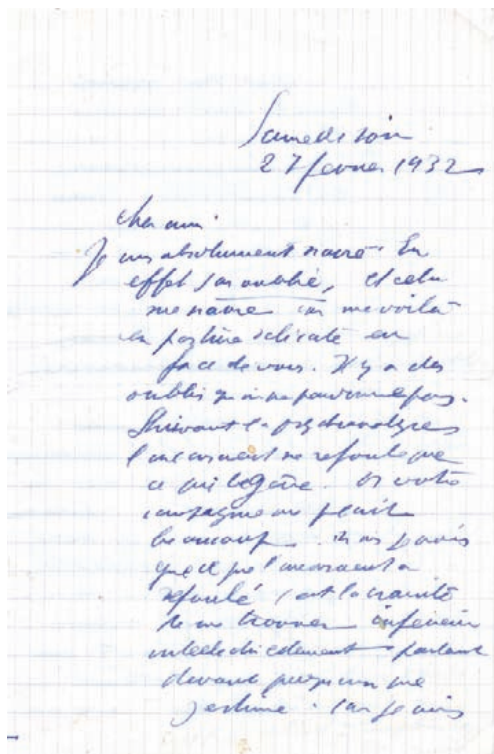 Samedi soir
27 février 1932
cher ami.
Je suis absolument navré. En
effet j'ai oublié, et cela
me navre car me voilà
en posture délicate en
face de vous. Il y a des
oublis qu'on ne pardonne pas.
Suivant la psychanalyse
l'inconscient ne refoule que
ce qui le gêne. Or votre
compagnie me plait
beaucoup. Mais je crois
que ce que l'inconscient a
refoulé c'est la crainte
de me trouver inférieur
intellectuellement parlant
devant quelqu'un que
j'estime. Car je suis